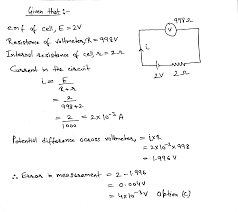 Given that:-
emf of cell, E = 2V
Resistance of voltmeter, R = 998Ω
Internal resistance of cell, r = 2Ω
Current in the circuit
i = E / (R+r)
= 2 / (998+2)
= 2/1000 = 2×10⁻³ A
Potential difference across voltmeter, = i×R
= 2×10⁻³×998
= 1.996 V
∴ Error in measurement = 2-1.996
= 0.004V
= 4×10⁻³V Option (C)
998Ω
V
i
2V 2Ω